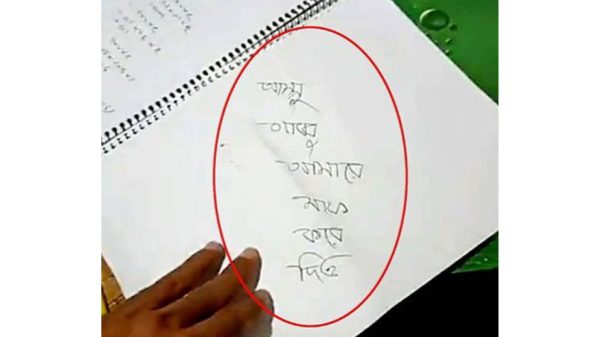 আম্মু
আব্বু
আমারে
মাফ
করে
দিও